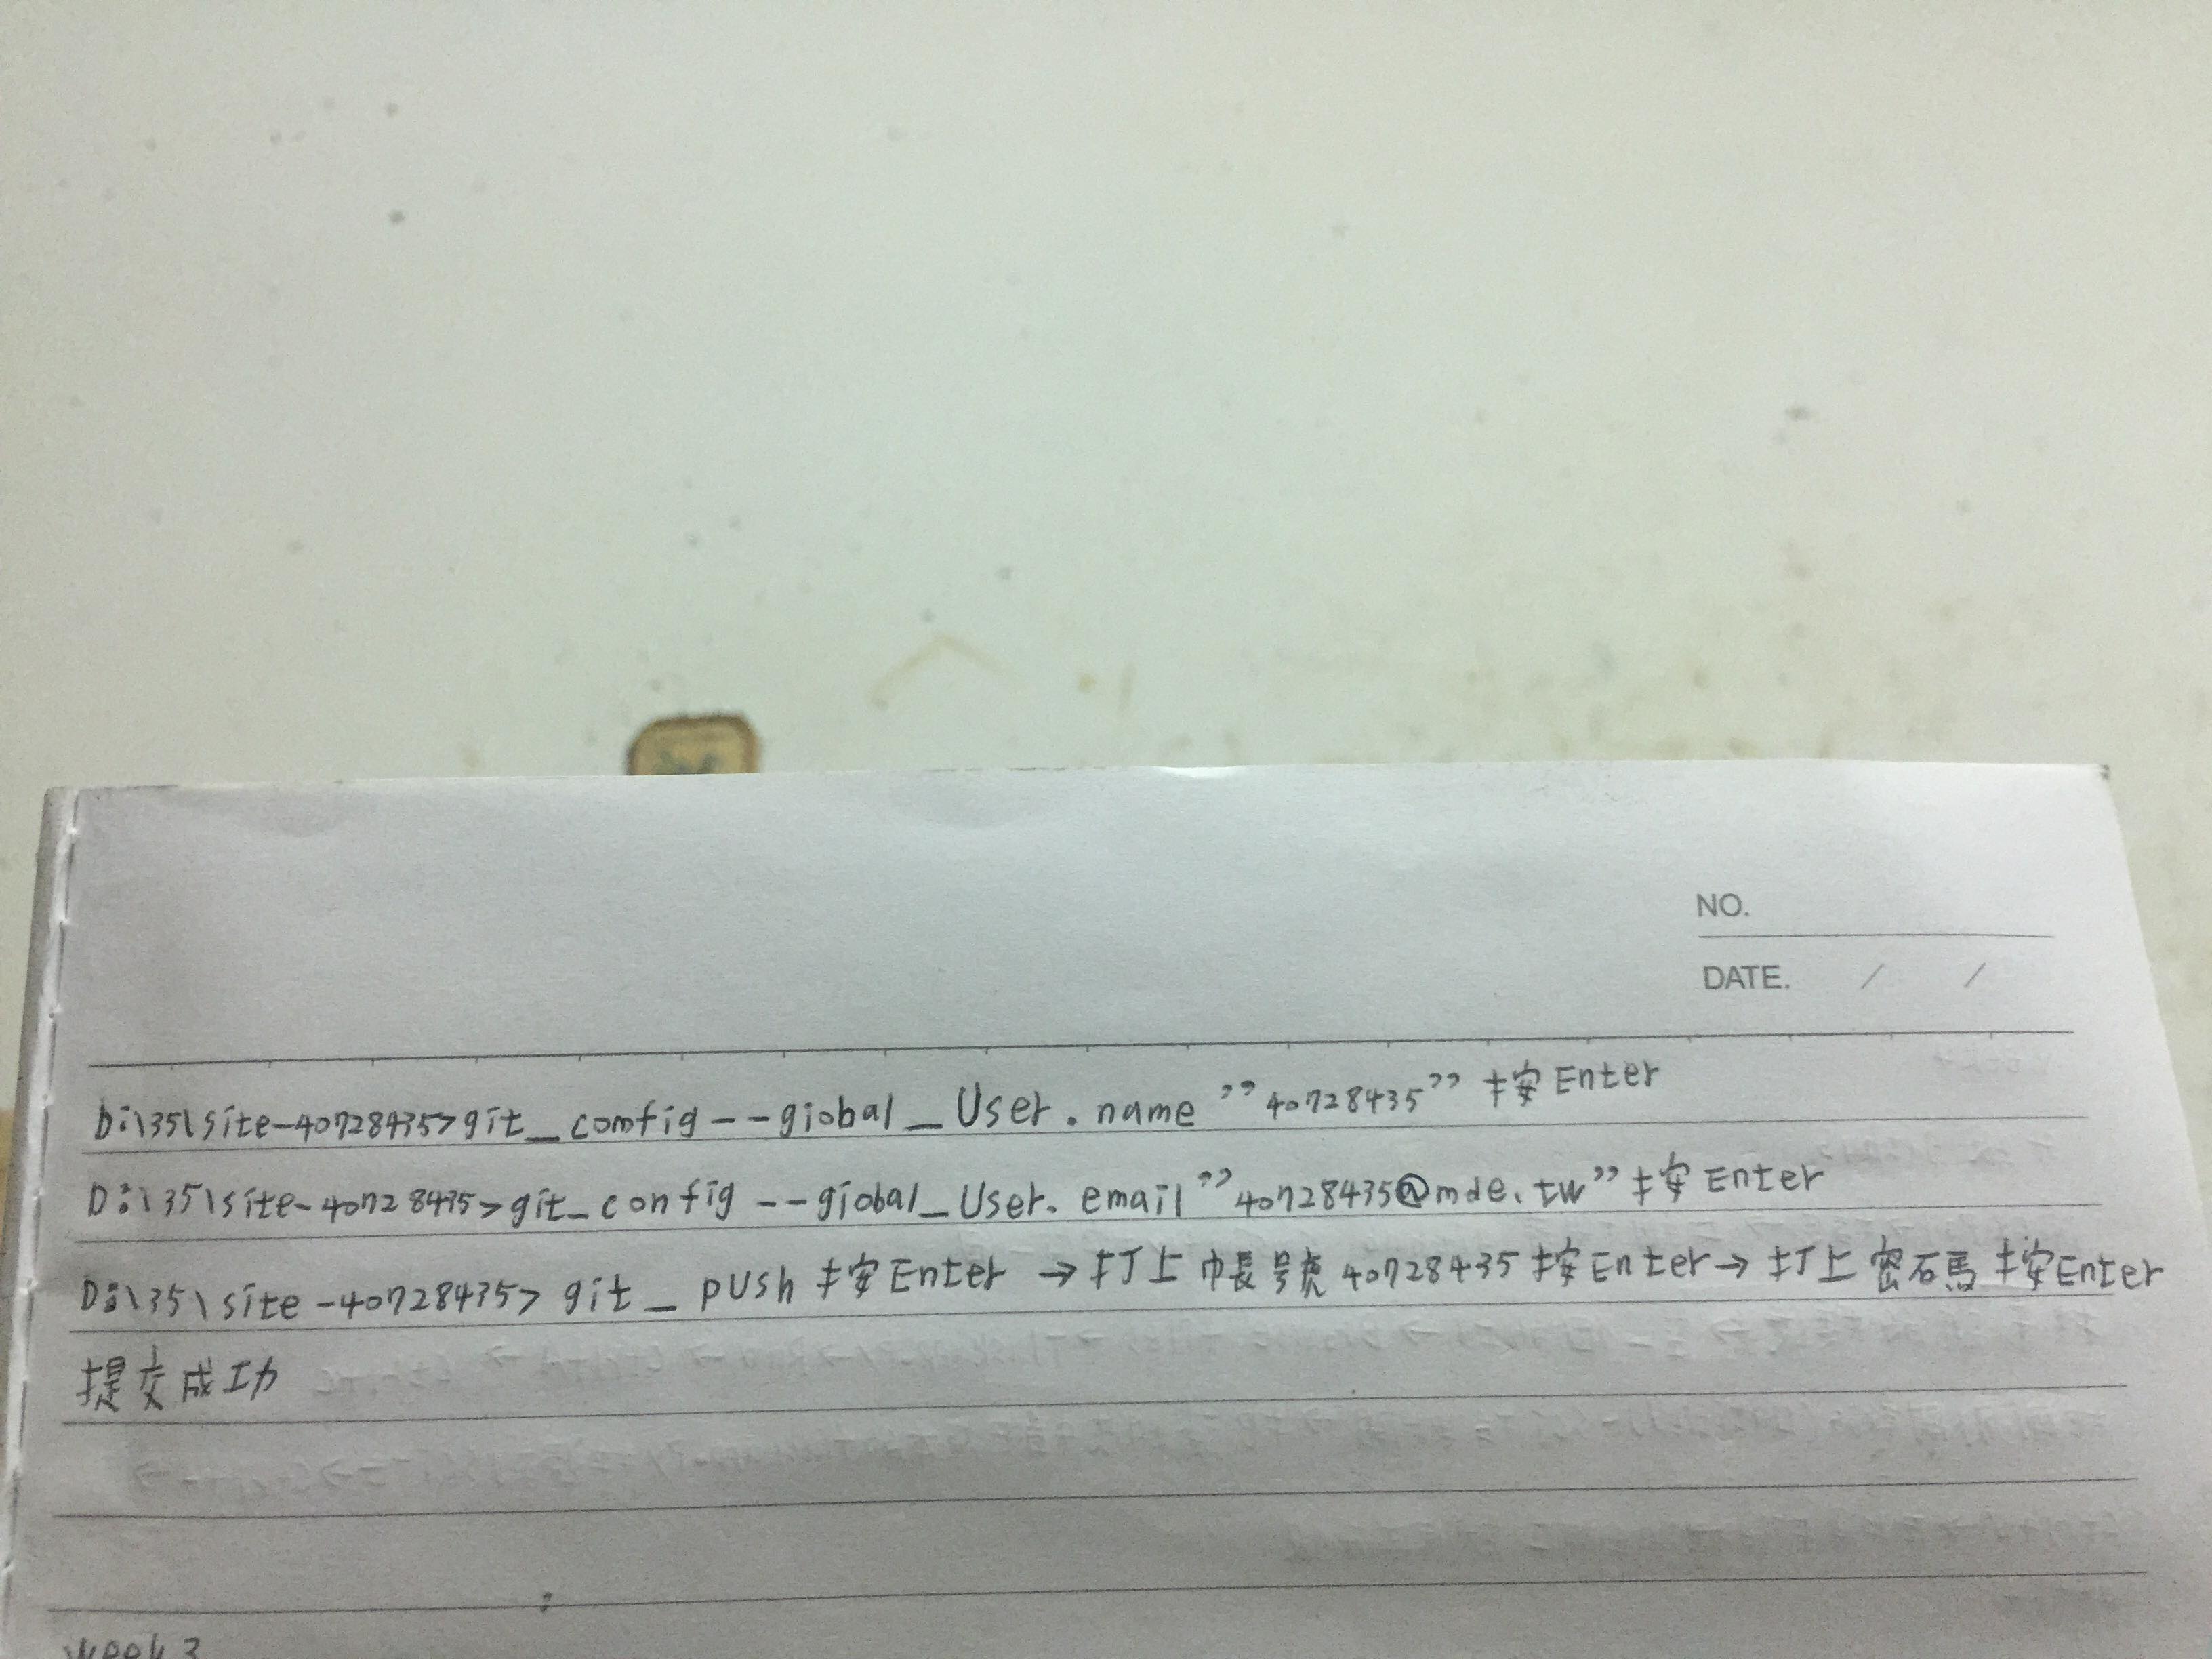 NO.
DATE. / /
D:\35\site-40728435>git_comfig--giobal_User.name "40728435" 按Enter
D:\35\site-40728435>git_config --giobal_User.email "40728435@mde.tw" 按Enter
D:\35\site-40728435> git_push 按Enter → 打上帳號40728435按Enter→打上密碼按Enter
提交成功
week3